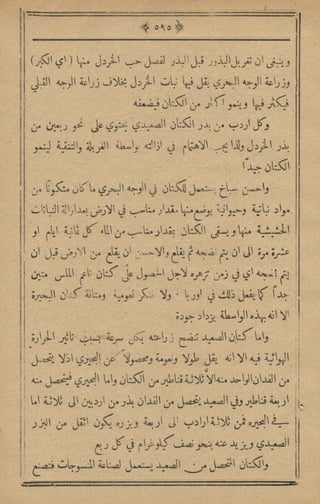 ﴿ ٥٩٥ ﴾
وينبغى ان تغربل البذور قبل البذر لفصل حب الخردل منها (اي الكبر)
وزراعة الوجه البحري يقل فيها نبات الخردل بخلاف زراعة الوجه القبلي
فيكثر فيها وينمو اكثر من الكتان فيضعفه
وكل اردب من بذر الكتان الصعيدي يحتوي على نحو ربعين من
بذر الخردل ولذا يجب الاهتمام في ازالته بواسطة الغربلة والتنقية لينمو
الكتان جيدًا
واحسن سباخ يستعمل للكتان في الوجه البحري ما كان متكونًا من
مواد نباتية وحيوانية يوضع منها مقدار مناسب في الارض بعد ازالة النباتات
الحشيشية منها ويسقى الكتان بمقدار مناسب من الماء كل ثمانية ايام او
عشرة مرة الى ان يتم نضجه ثم يقلع والاحسن ان يقلع من الارض قبل ان
يتم نضجه اي في زمن تزهره لاجل الحصول على كتان ناعم الملمس متين
جدًا كما يفعل ذلك في اوربا ٠ ولا تنكر نعومية ومتانة كتان البحيرة
الا انه بهذه الواسطة يزداد جودة
واما كتان الصعيد تنضج زراعته بكل سرعة بسبب تاثير الحرارة
الهوائية فيه الا انه يقل طولًا ونعومة ومحصولًا عن البحيري اذ لا يتحصل
من الفدان الواحد منه الا ثلاثة قناطير من الكتان واما البحيري فيتحصل منه
اربعة قناطير وفي الصعيد يتحصل من الفدان بذر من اردبين الى ثلاثة اما
في البحيره فمن ثلاثة ارادب الى اربعة وبزره يكون اثقل من البزر
الصعيدي ويزيد عنه بنحو نصف كيلوغرام في كل ربع
والكتان المتحصل من الصعيد يستعمل لصناعة المنسوجات فتصنع